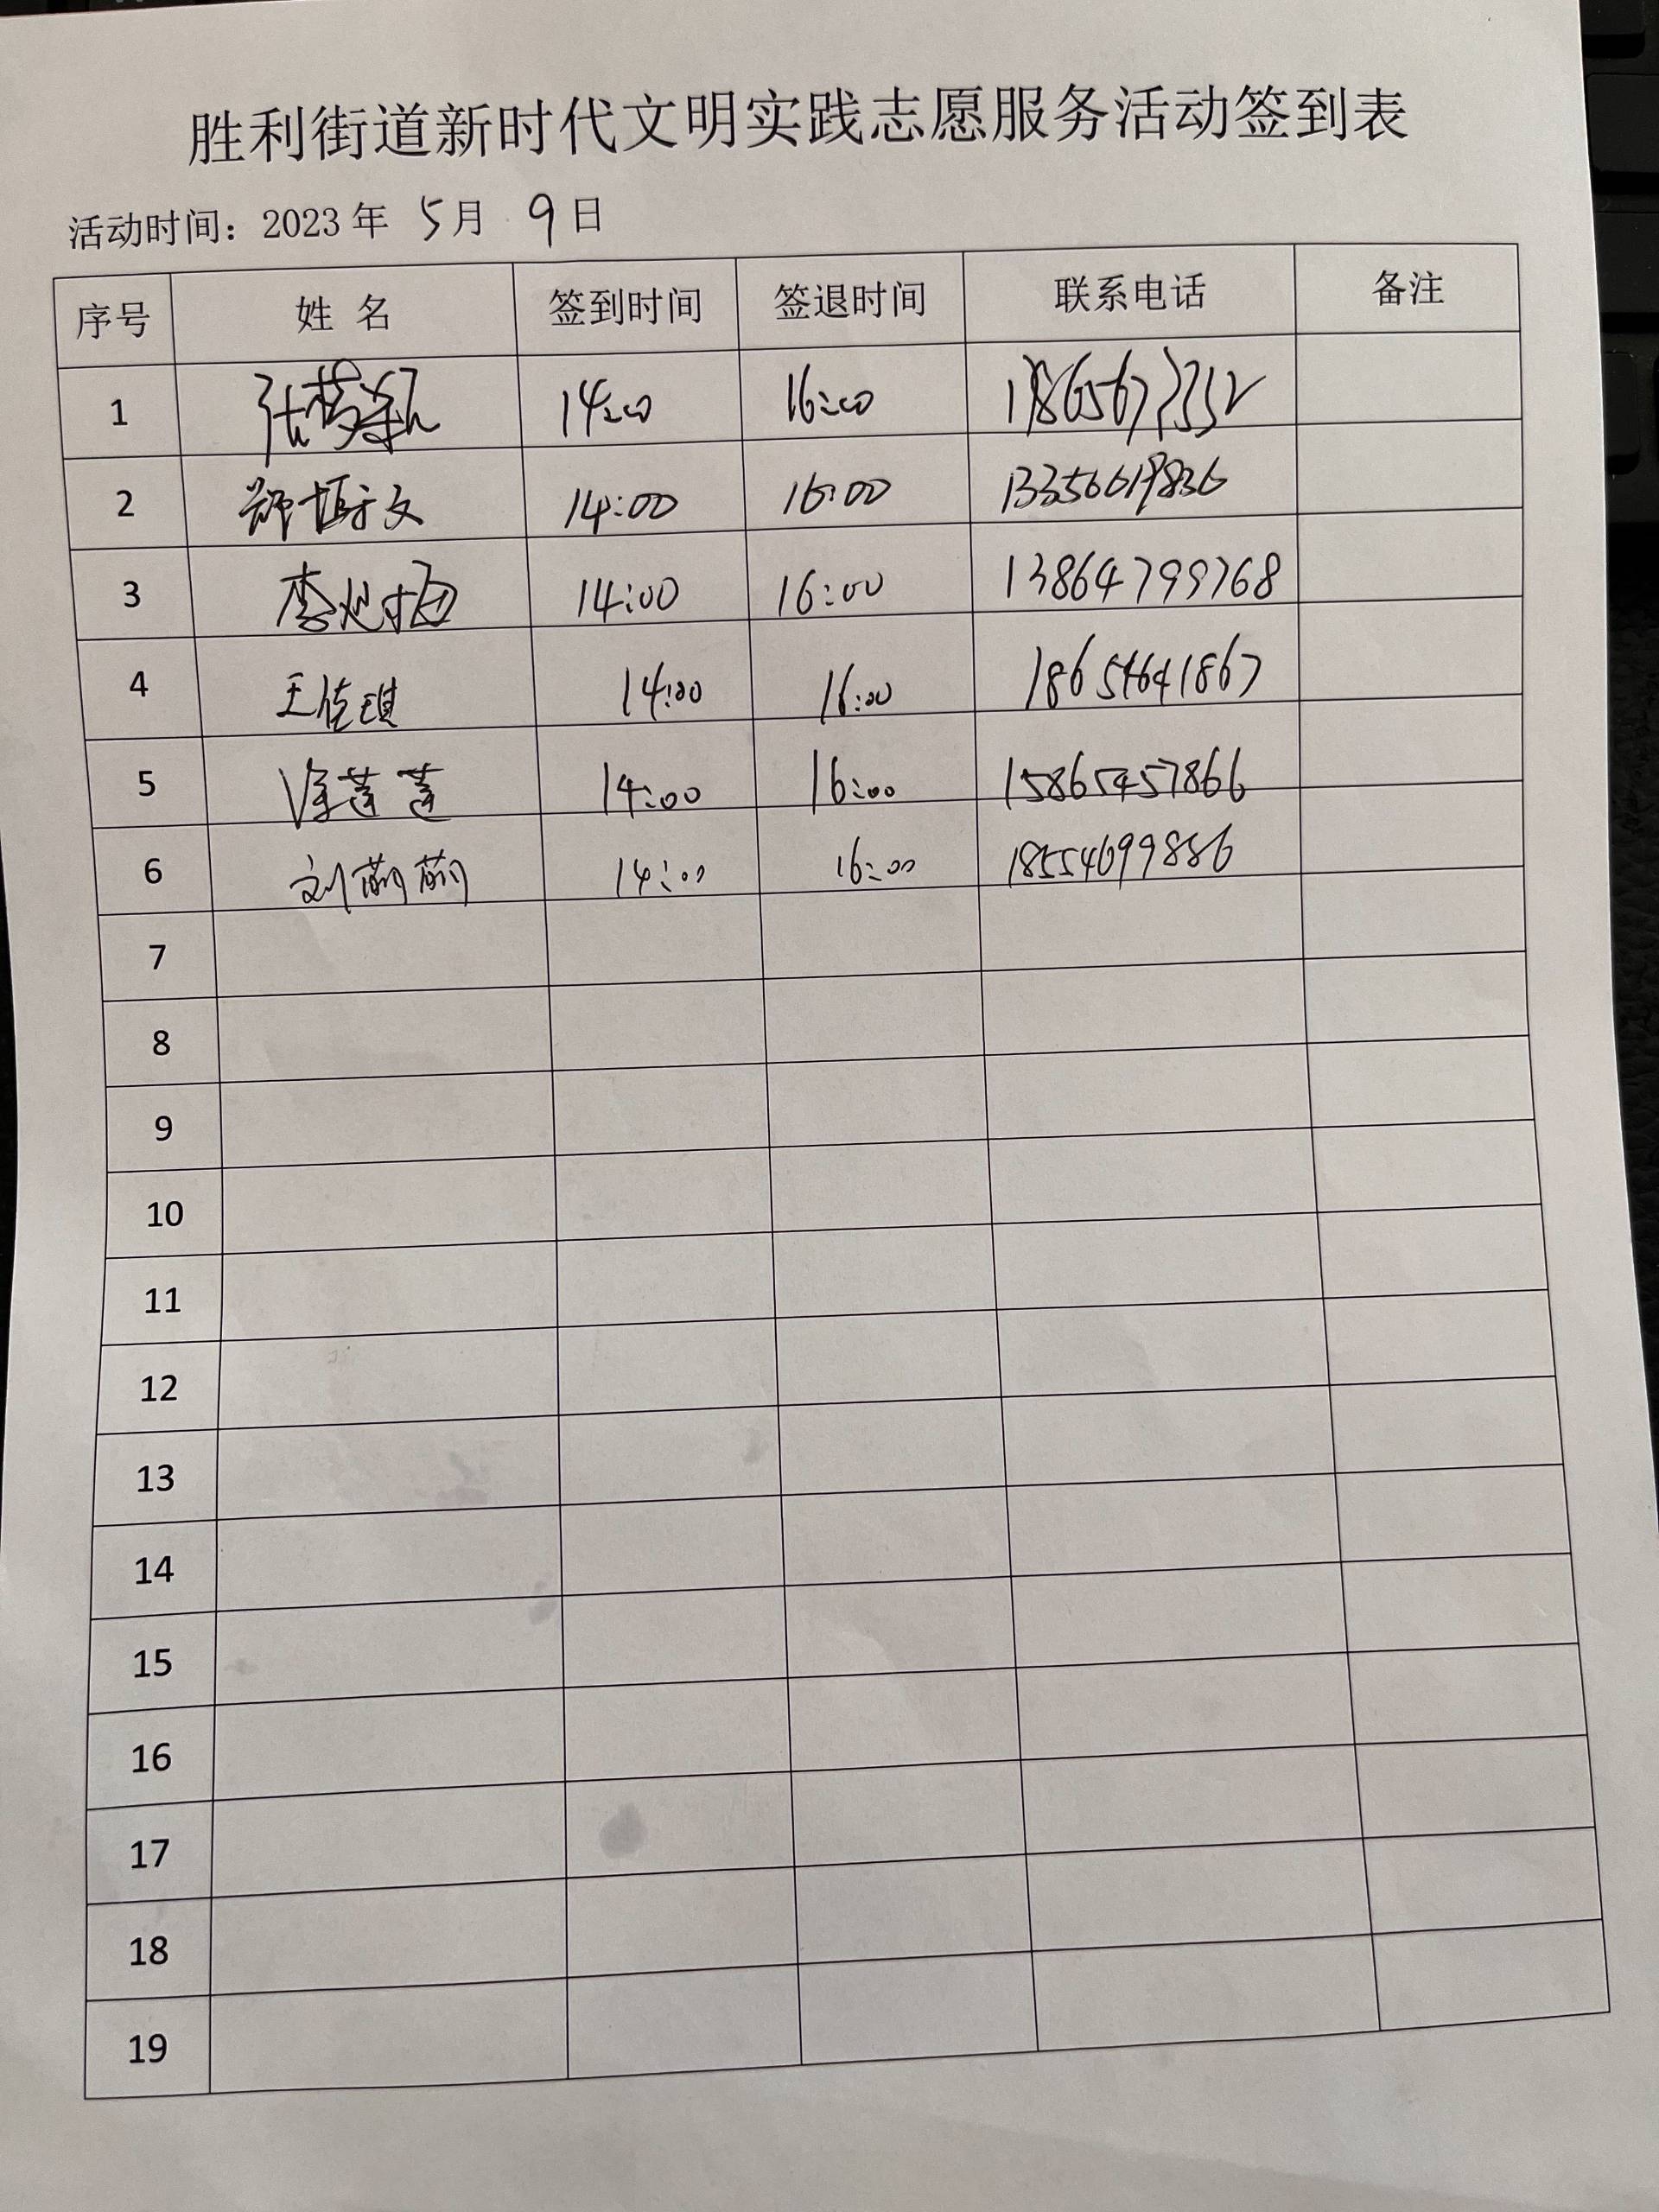 胜利街道新时代文明实践志愿服务活动签到表
活动时间：2023 年 5月 9日
序号 姓 名 签到时间 签退时间 联系电话 备注
1 14:00 16:00
2 14:00 16:00 13356619836
3 14:00 16:00 13864799768
4 王佳琪 14:00 16:00 18654641867
5 徐莲莲 14:00 16:00 15865457866
6 刘萌萌 14:00 16:00 18554699886
7
8
9
10
11
12
13
14
15
16
17
18
19